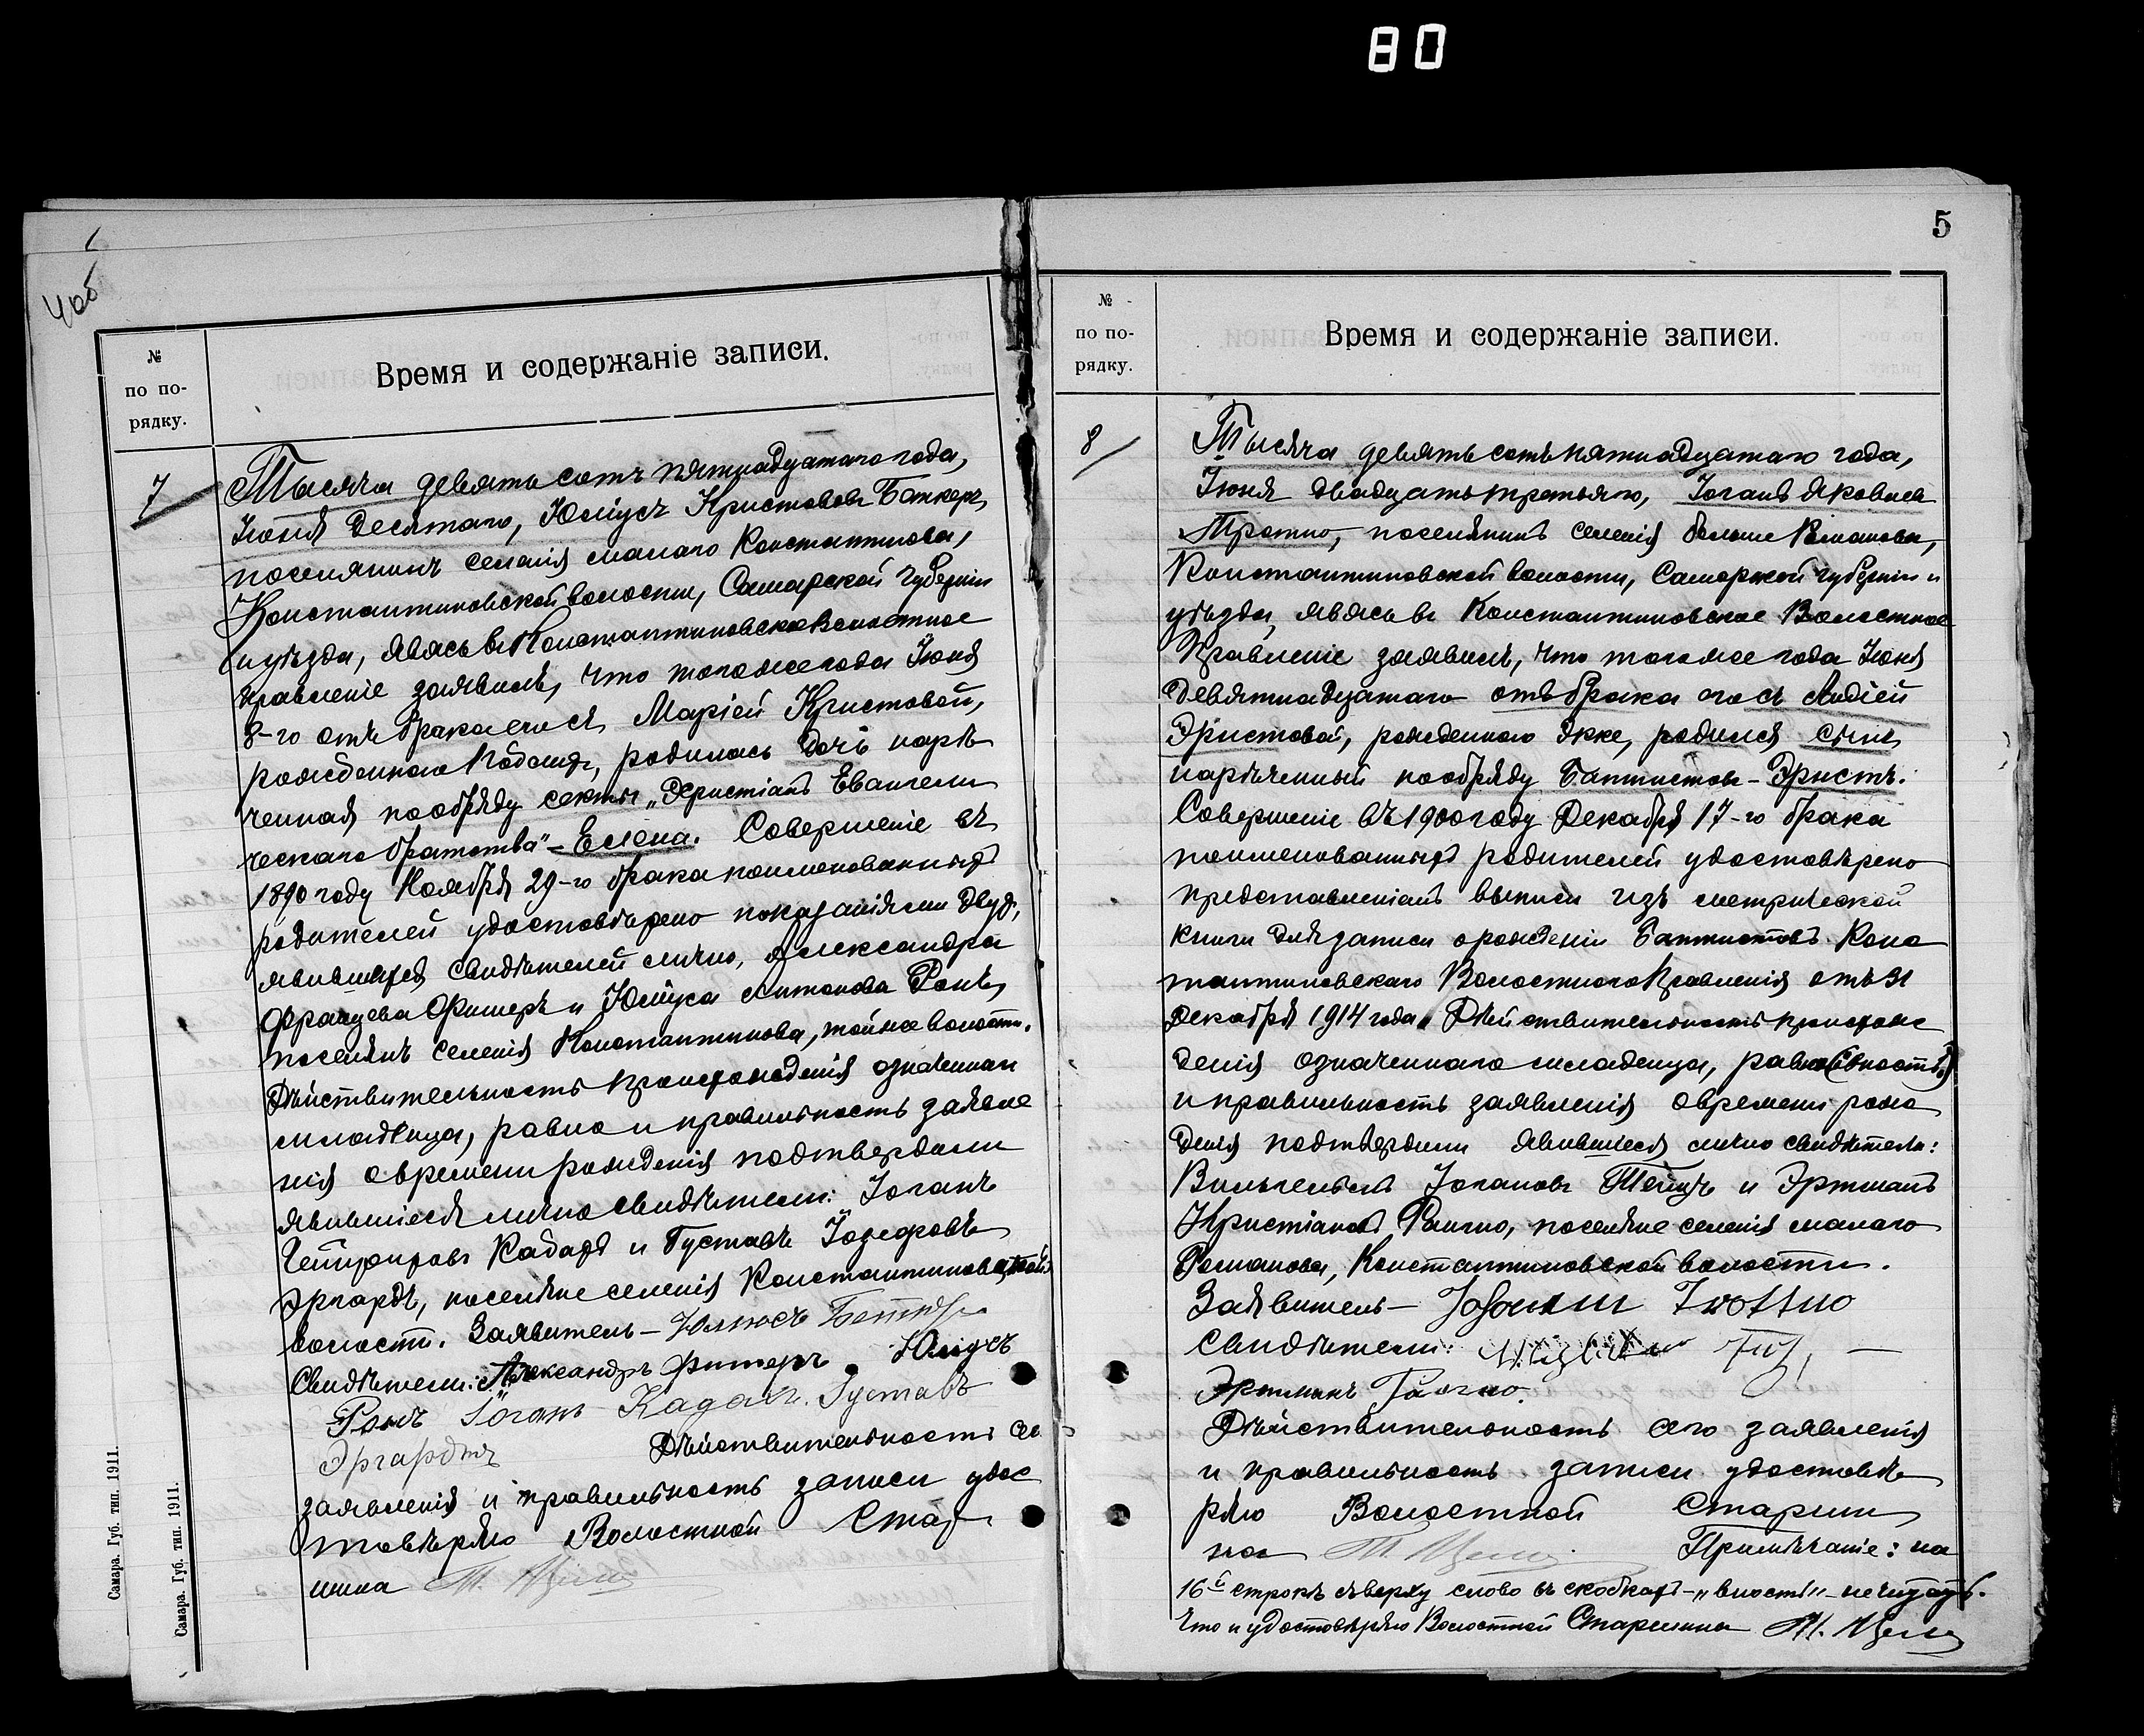 80
4об
№
по по-
рядку.
Время и содержаніе записи.
7
Тысяча девятьсотъ пятнадцатаго года,
Іюня Десятаго, Юліусъ Кристововъ
поселянинъ селенія малаго Константинова,
Константиновской волости, Самарской губерніи
и уѣзда, явясь въ Константиновское Волостное
правленіе заявилъ, что того же года Іюня
8-го отъ брака его съ Маріей Кристовой,
рожденною родилась дочь нарѣ
ченная по обряду секты „Христіанъ Евангели
ческаго братства" – Елена. Совершеніе въ
1890 году Ноября 29-го брака поименованныхъ
родителей удостовѣрено показаніями двухъ,
явившихся свидѣтелей лично, Александра
Францева Фишеръ и Юліуса Антонова Ронъ,
поселянъ селенія Константинова, той же волости.
Дѣйствительность происхожденія означеннаго
младенца, равно и правильность заявле
нія о времени рожденія подтвердили
явившіеся лично свидѣтели: Іоганъ
Кадахъ и Густавъ Іозефовъ
Эргардъ, поселяне селенія Константиновской
волости. Заявитель – Юлиусъ
Свидѣтели: Александръ Фишеръ. Юліусъ
Ронъ Іоганъ Кадахъ. Густавъ
Эргардтъ Дѣйствительность сего
заявленія и правильность записи удос
товѣряю Волостной Стар
шина
Самара. Губ. тип. 1911.
Самара. Губ. тип. 1911.
5
№
по по-
рядку.
Время и содержаніе записи.
8
Тысяча девятьсотъ пятнадцатаго года,
Іюня двадцать третьяго, Іоганъ Яковлев
Тротно, поселянинъ селенія больше Романова,
Константиновской волости, Самарской губерніи и
уѣзда, явясь въ Константиновское Волостное
Правленіе заявилъ, что того же года Іюня
Девятнадцатаго отъ брака его съ Лидіей
Эрнстовой, рожденною Якке, родился сынъ
нарѣченный по обряду Баптистовъ – Эрнстъ.
Совершеніе въ 1900 году Декабря 17-го брака
поименованныхъ родителей удостовѣрено
представленіемъ выписи изъ метрической
книги для записи о рожденіи Баптистовъ Конс
тантиновскаго Волостного Правленія отъ 31
Декабря 1914 года. Дѣйствительность происхож
денія означеннаго младенца, равно (вность)
и правильность заявленія о времени рож
денія подтвердили явившіеся лично свидѣтели:
Вильгельмъ Іогановъ и Эртманъ
Кристіановъ поселяне селенія малаго
Романова, Константиновской волости.
Заявитель –
Свидѣтели:
Эртманъ
Дѣйствительность сего заявленія
и правильность записи удостовѣ
ряю Волостной Старши
на Примѣчаніе: на
16й строкѣ сверху слово въ скобкахъ – „вность" – не читать.
Что и удостовѣряю Волостной Старшина